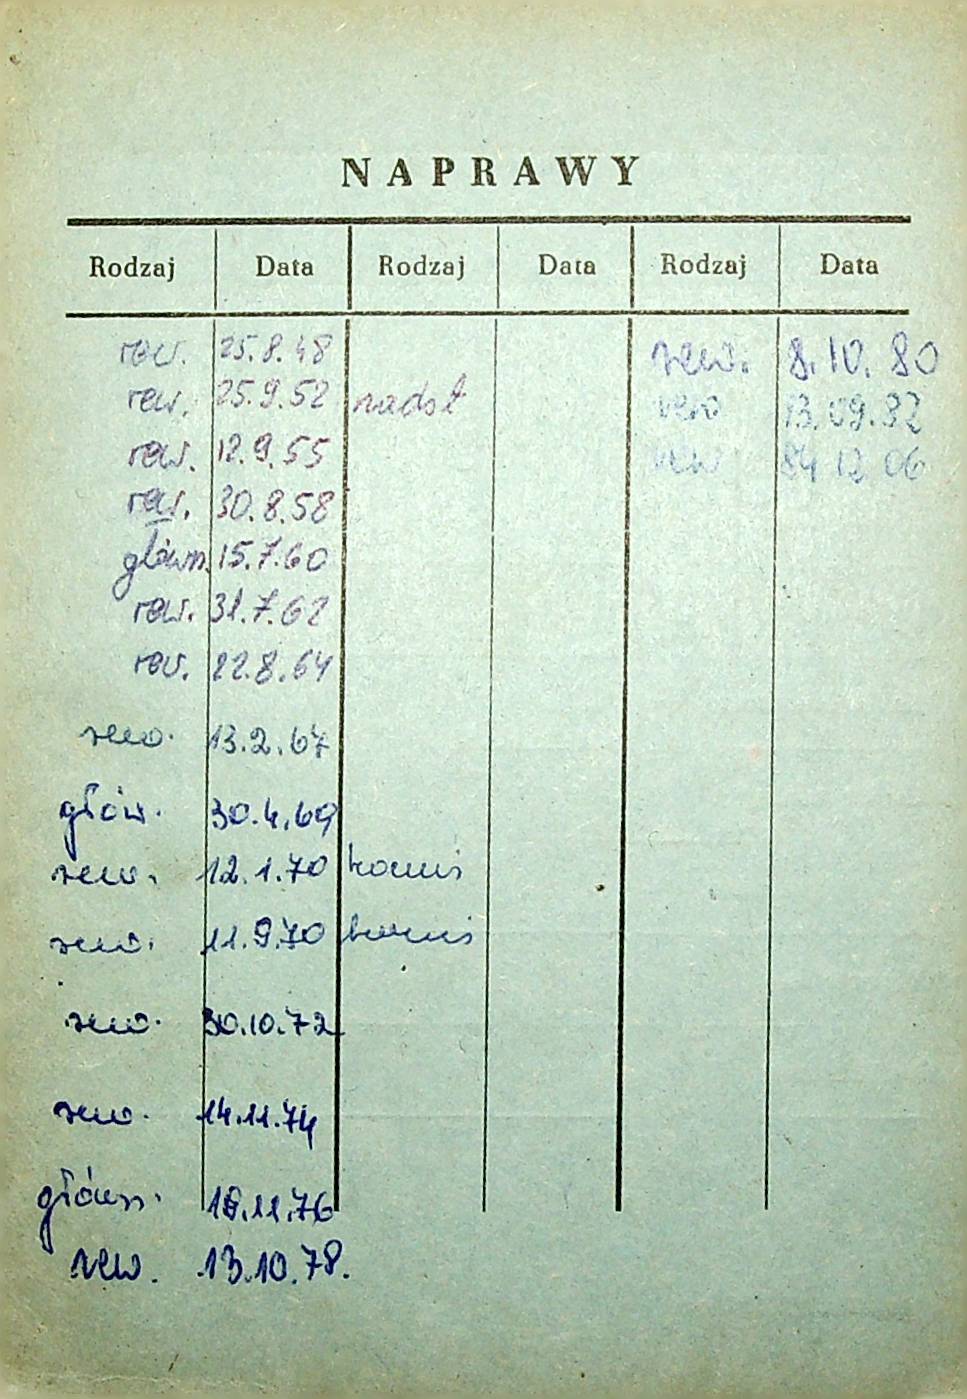 NAPRAWY
Rodzaj Data Rodzaj Data Rodzaj Data
rew. 25.8.48 rew. 8.10.80
rew. 25.9.52 nadst rew 13.09.82
rew. 12.9.55 rew 84 12 06
rew. 30.8.58
główn. 15.7.60
rew. 31.7.62
rew. 22.8.64
rew. 13.2.67
głów. 30.4.69
rew. 12.1.70
rew. 11.9.70
rew. 30.10.72
rew. 14.11.74
główn. 18.11.76
rew. 13.10.78.